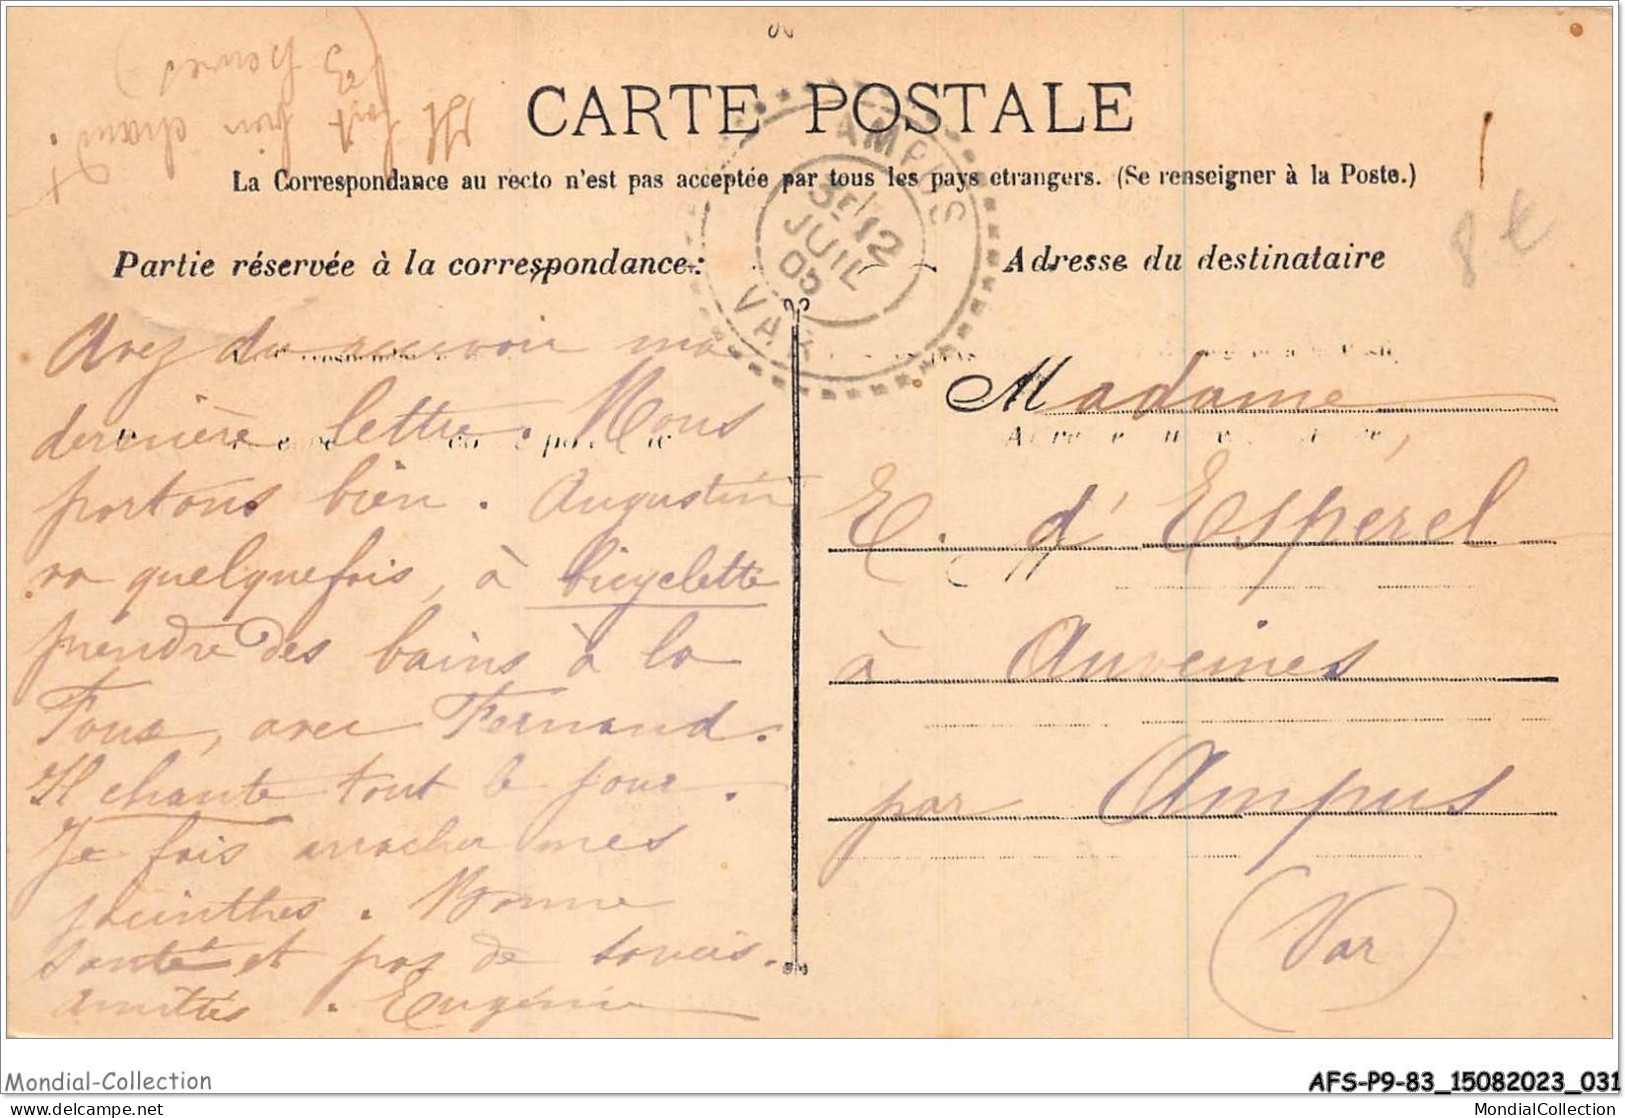 (3 heures)
Il fait bien chaud.
CARTE POSTALE
La Correspondance au recto n'est pas acceptée par tous les pays etrangers. (Se renseigner à la Poste.)
Partie réservée à la correspondance:
Adresse du destinataire
AMPUS
3E/12
JUIL
05
VAR
8 €
Avez du recevoir ma
dernière lettre. Nous
portons bien. Augustin
va quelquefois, à bicyclette
prendre des bains à la
Foux, avec Fernand.
Il chante tout le jour.
Je fais arracher mes
jacinthes. Bonne
santé et pas de soucis.
Amitiés. Eugénie
Madame
E. d'Esperel
à Auveines
par Ampus
(Var)
Mondial-Collection
AFS-P9-83_15082023_031
www.delcampe.net
MondialCollection